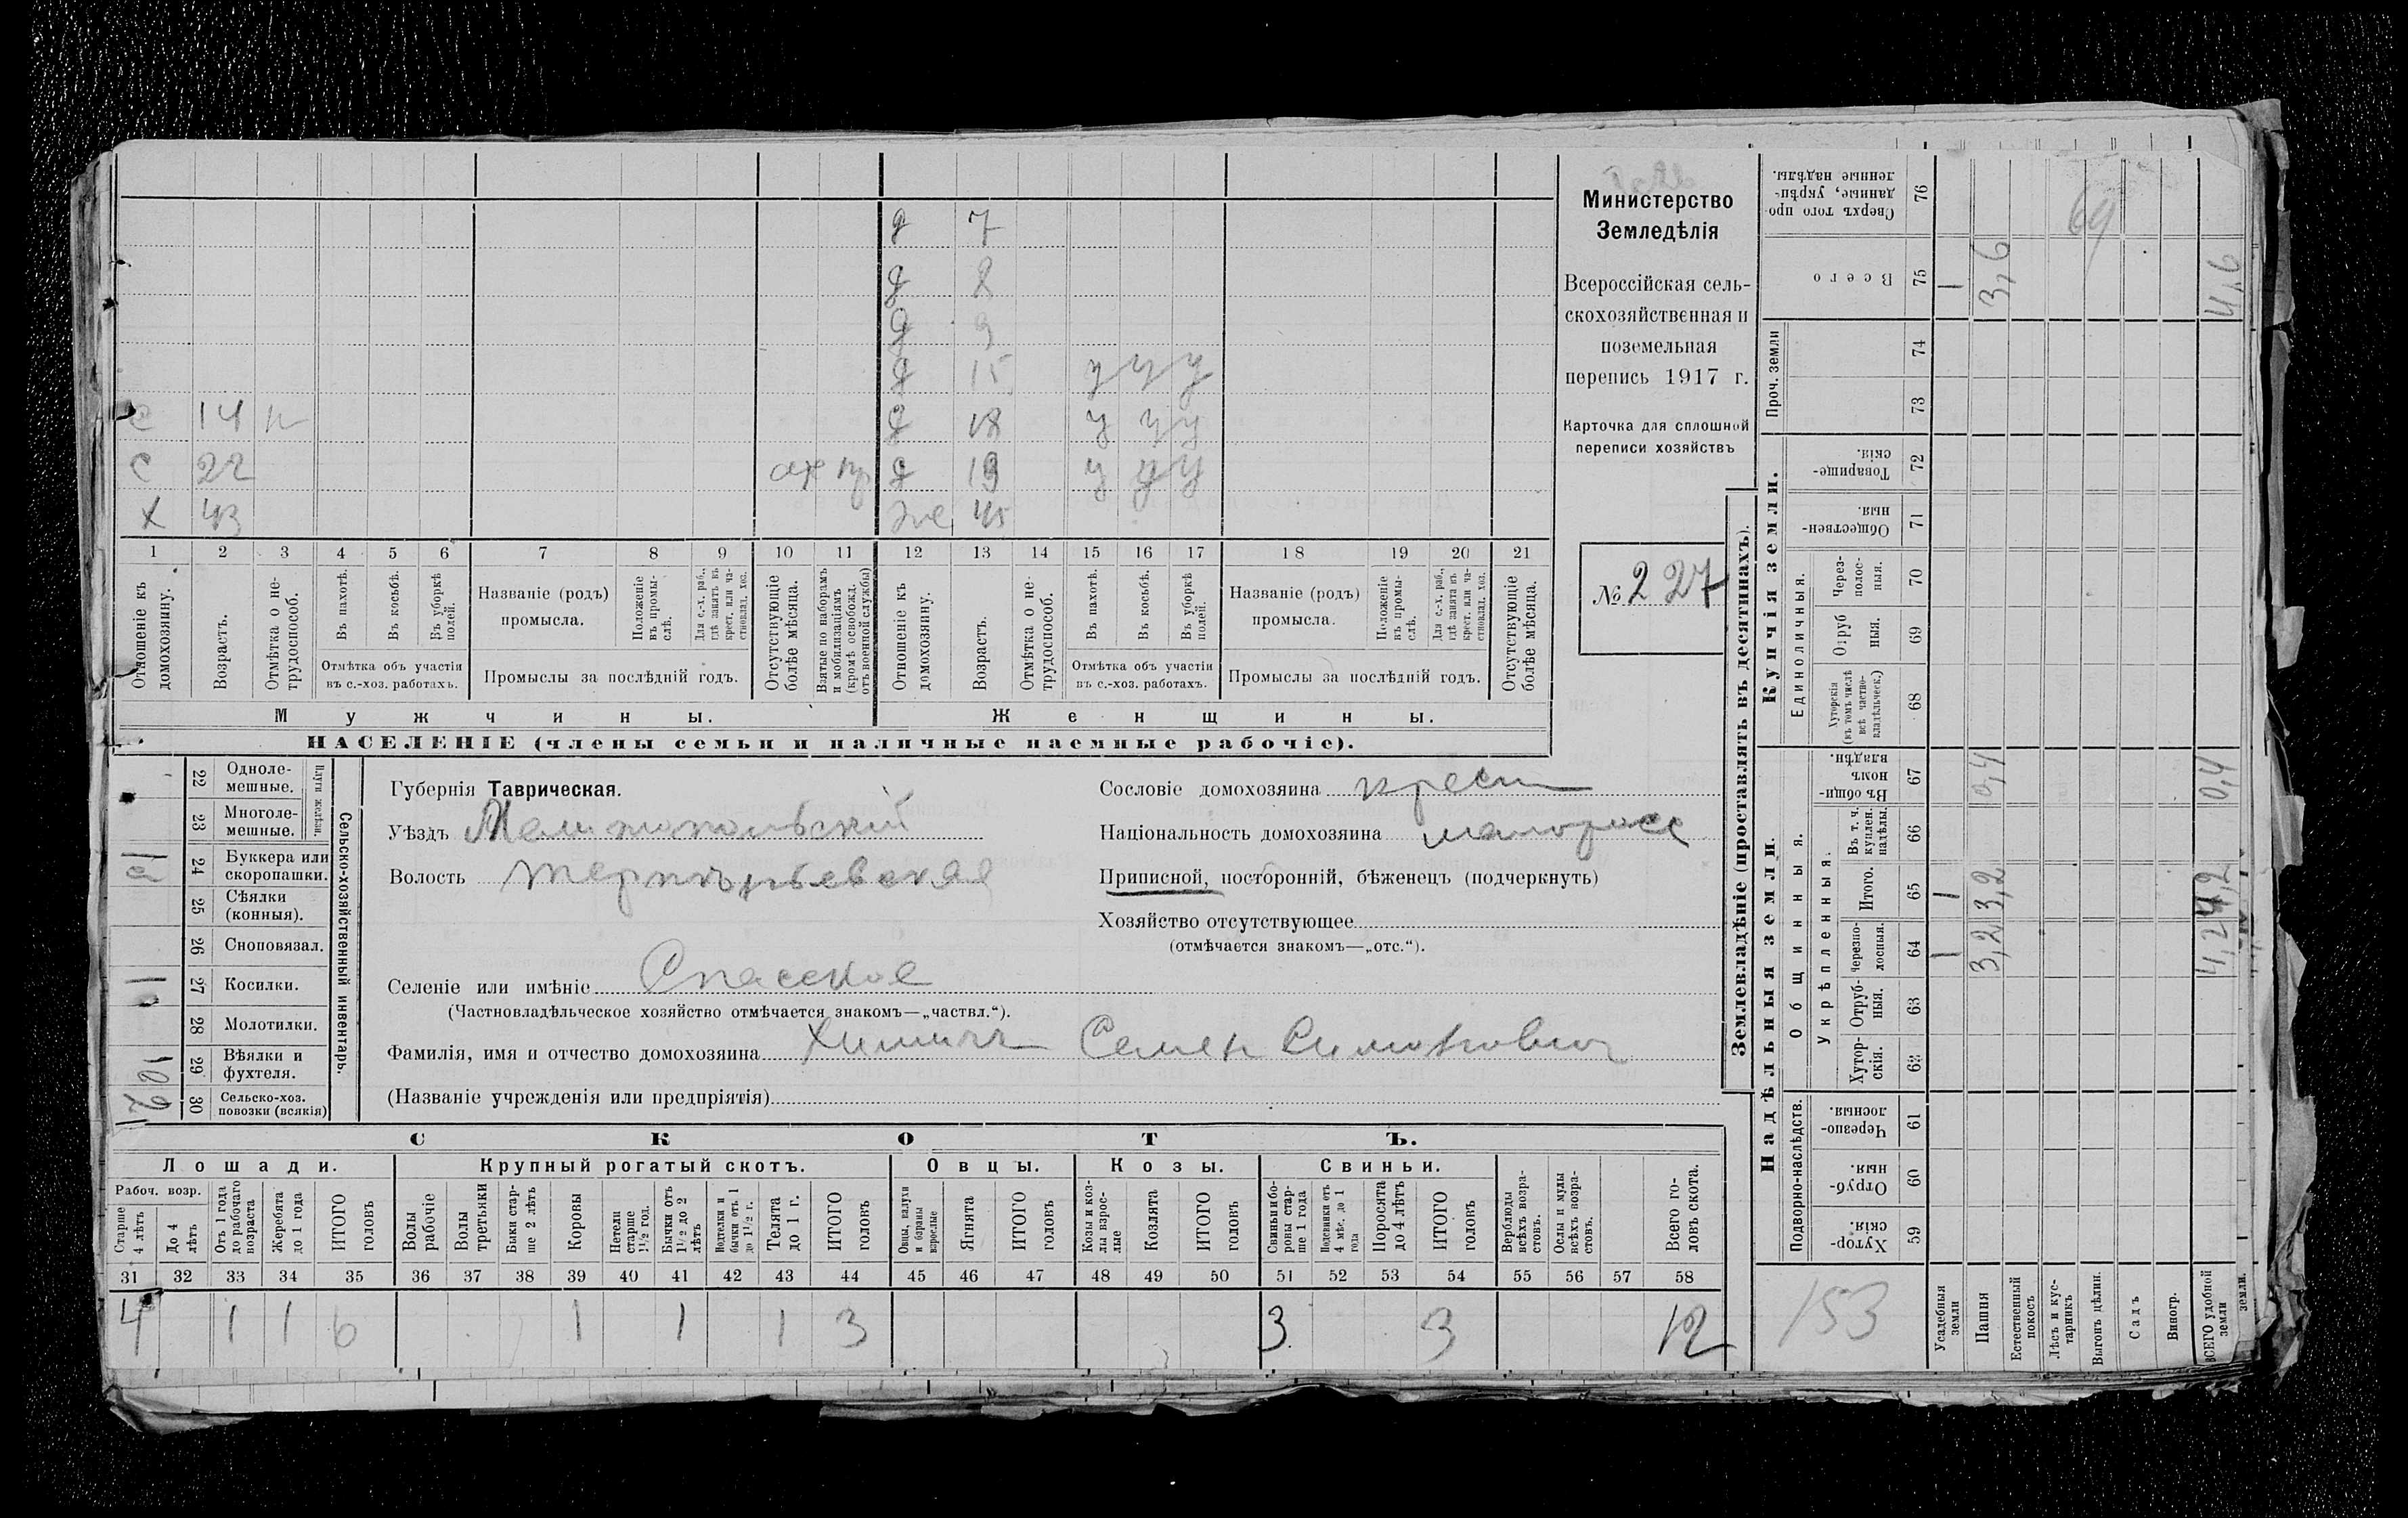 д 7
д 8
д 9
д 15 у у у
с 14 н д 18 у у у
с 22 д 19 у у у
х 43 же 45
1 2 3 4 5 6 7 8 9 10 11 12 13 14 15 16 17 18 19 20 21
Отношеніе къ домохозяину.
Возрастъ.
Отмѣтка о нетрудоспособ.
Въ пахотѣ.
Въ косьбѣ.
Въ уборкѣ полей.
Отмѣтка объ участіи въ с.-хоз. работахъ.
Названіе (родъ) промысла.
Положеніе въ промыслѣ.
Для с.-х. раб., гдѣ занятъ въ крест. или частновлад. хоз.
Промыслы за послѣдній годъ.
Отсутствующіе болѣе мѣсяца.
Взятые по наборамъ и мобилизаціямъ (кромѣ освобожд. отъ военной службы)
Отношеніе къ домохозяину.
Возрастъ.
Отмѣтка о нетрудоспособ.
Въ пахотѣ.
Въ косьбѣ.
Въ уборкѣ полей.
Отмѣтка объ участіи въ с.-хоз. работахъ.
Названіе (родъ) промысла.
Положеніе въ промыслѣ.
Для с.-х. раб., гдѣ занята въ крест. или частновлад. хоз.
Промыслы за послѣдній годъ.
Отсутствующіе болѣе мѣсяца.
Мужчины. Женщины.
НАСЕЛЕНІЕ (члены семьи и наличные наемные рабочіе).
Министерство
Земледѣлія
Всероссійская сель-
скохозяйственная и
поземельная
перепись 1917 г.
Карточка для сплошной
переписи хозяйствъ
№ 227
22 Одноле-мешные.
23 Многоле-мешные.
Плуги желѣзн.
24 Буккера или скоропашки.
25 Сѣялки (конныя).
26 Сноповязал.
27 Косилки.
28 Молотилки.
29 Вѣялки и фухтеля.
30 Сельско-хоз. повозки (всякія)
Сельско-хозяйственный инвентарь.
Губернія Таврическая.
Уѣздъ Мелитопольскій
Волость Терпѣньевская
Селеніе или имѣніе Спасское
(Частновладѣльческое хозяйство отмѣчается знакомъ—„частвл.“).
Фамилія, имя и отчество домохозяина Семен
(Названіе учрежденія или предпріятія)
Сословіе домохозяина крест
Національность домохозяина малоросс
Приписной, посторонній, бѣженецъ (подчеркнуть)
Хозяйство отсутствующее
(отмѣчается знакомъ—„отс.“).
СКОТЪ.
Лошади. Крупный рогатый скотъ. Овцы. Козы. Свиньи.
Рабоч. возр.
Старше 4 лѣтъ
До 4 лѣтъ
Отъ 1 года до рабочаго возраста
Жеребята до 1 года
ИТОГО головъ
Волы рабочіе
Волы третьяки
Быки старше 2 лѣтъ
Коровы
Нетели старше 1½ год.
Бычки отъ 1½ до 2 лѣтъ
Подтелки и бычки отъ 1 до 1½ г.
Телята до 1 г.
ИТОГО головъ
Овцы, валухи и бараны взрослые
Ягнята
ИТОГО головъ
Козы и козлы взрослые
Козлята
ИТОГО головъ
Свиньи и боровы старше 1 года
Подсвинки отъ 4 мѣс. до 1 года
Поросята до 4 лѣтъ
ИТОГО головъ
Верблюды всѣхъ возрастовъ.
Ослы и мулы всѣхъ возрастовъ.
Всего головъ скота.
31 32 33 34 35 36 37 38 39 40 41 42 43 44 45 46 47 48 49 50 51 52 53 54 55 56 57 58
4 1 1 6 1 1 1 3 3 3 12
Землевладѣніе (проставлять въ десятинахъ).
Сверхъ того проданные, укрѣпленные надѣлы. 76
Всего 75 1 3,6 4,6
Проч. земли 74 73
Купчія земли.
Товарищескія. 72
Общественныя. 71
Единоличныя.
Черезполосныя. 70
Отрубныя. 69
Хуторскія (въ томъ числѣ всѣ частновладѣльческ.) 68
Надѣльныя земли.
Общинныя.
Въ общинномъ владѣн. 67 0,4 0,4
Укрѣпленныя.
Въ т. ч. куплен. надѣлы. 66
Итого. 65 1 3,2 4,2
Черезполосныя. 64 1 3,2 4,2
Отрубныя. 63
Хуторскія. 62
Подворно-наслѣдств.
Черезполосныя. 61
Отрубныя. 60
Хуторскія. 59
153
69
Усадебныя земли
Пашня
Естественный покосъ
Лѣсъ и кустарникъ
Выгонъ цѣлин.
Садъ
Виногр.
ВСЕГО удобной земли
земли.